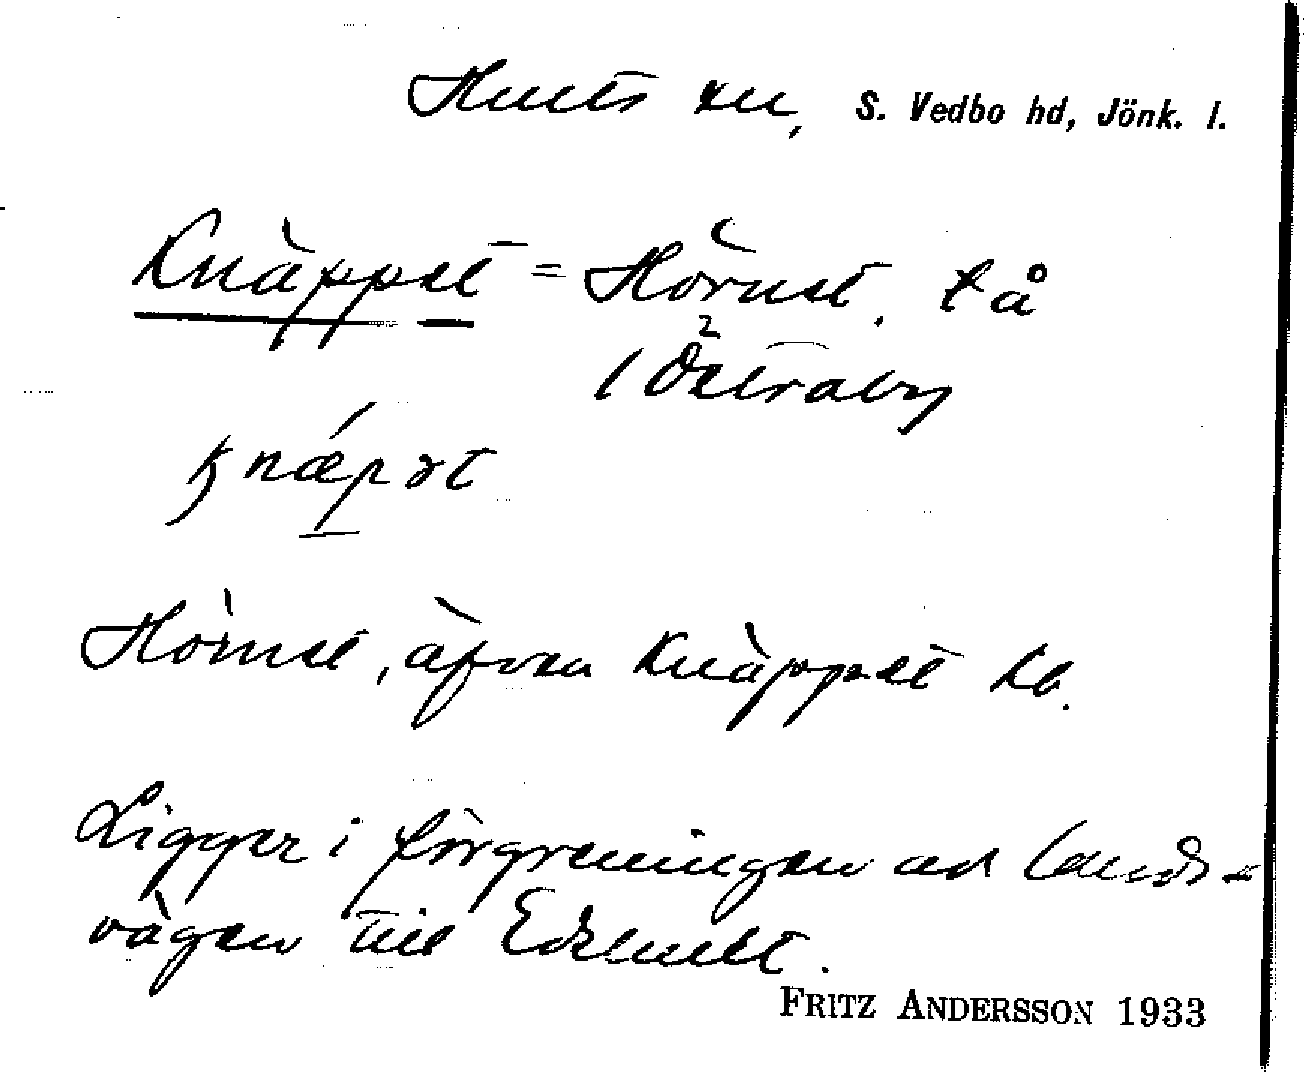 Hults sn, S. Vedbo hd, Jönk. l.
Knäppet = Hörnet. tå
i Östraby
knæpət
Hörnet, äfven Knäppet lb.
Ligger i förgreningen av lands-
vägen till Edshult.
FRITZ ANDERSSON 1933